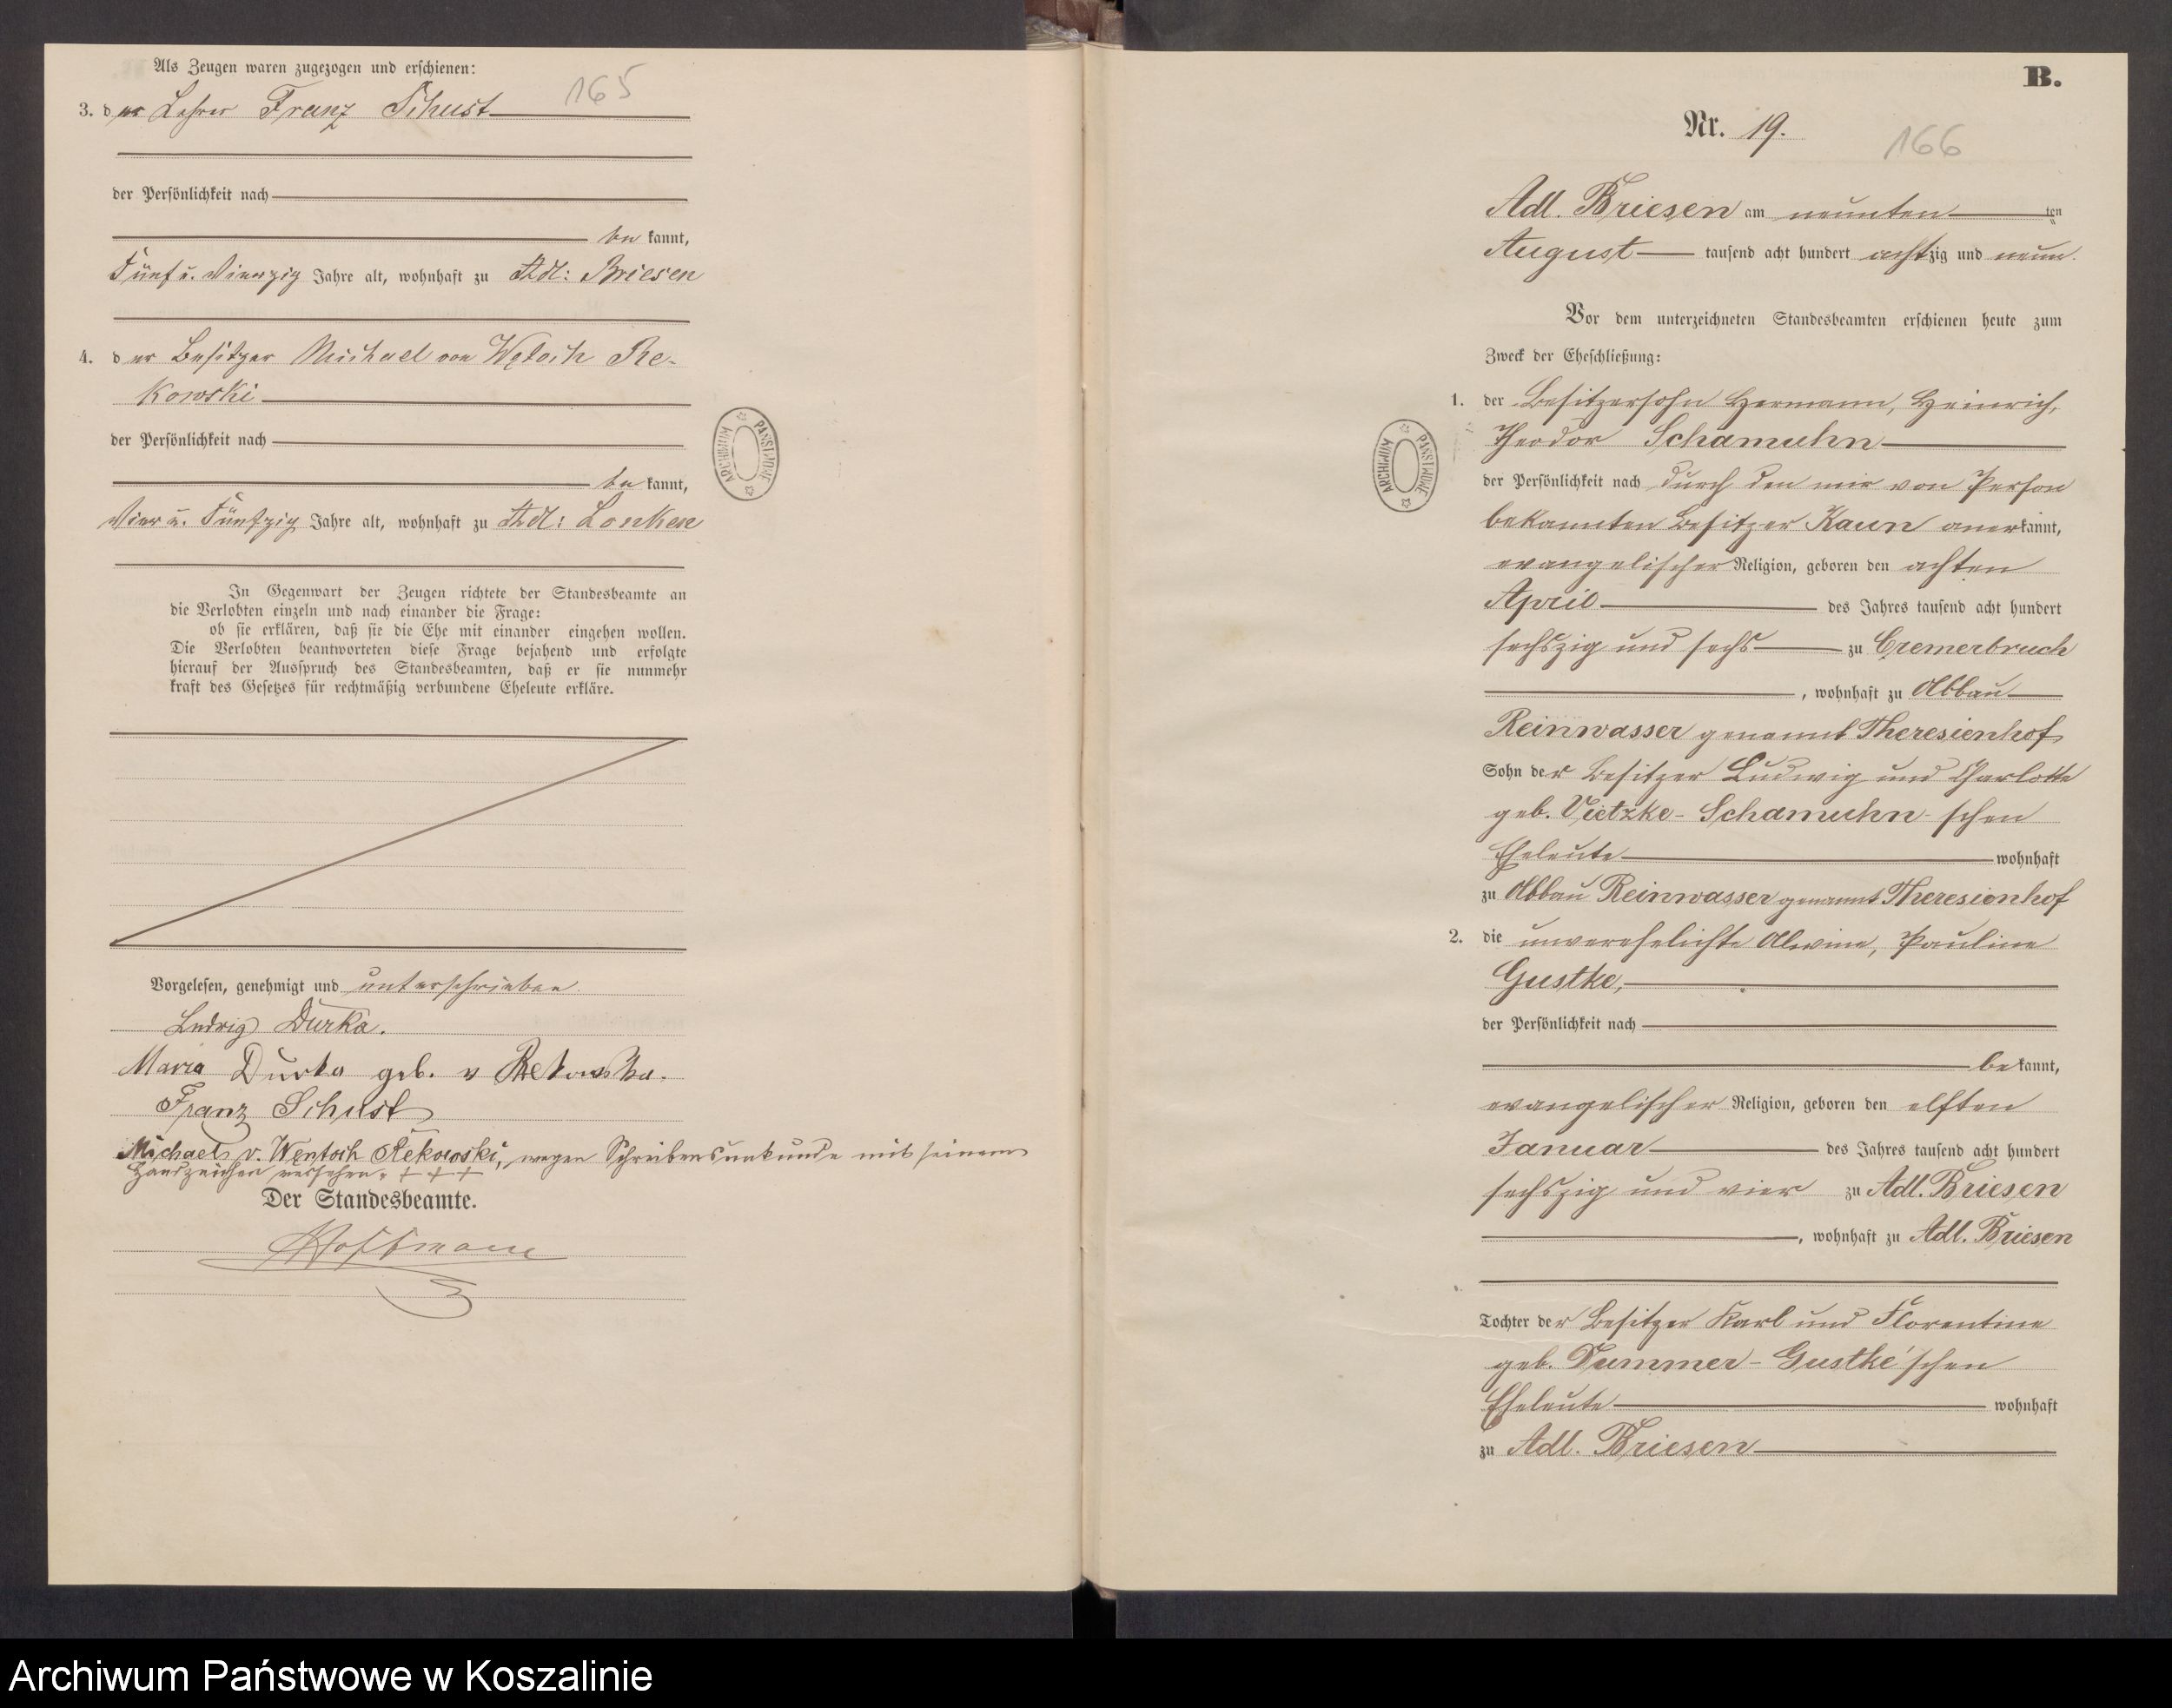 Als Zeugen waren zugezogen und erschienen:
165
3. der Lehrer Franz Schust
der Persönlichkeit nach
be kannt,
Fünf u. Vierzig Jahre alt, wohnhaft zu Adl: Briesen
4. der Besitzer Michael von Wętoch Re-
kowski
der Persönlichkeit nach
be kannt,
Vier u. Fünfzig Jahre alt, wohnhaft zu Adl: Lonken
In Gegenwart der Zeugen richtete der Standesbeamte an
die Verlobten einzeln und nach einander die Frage:
ob sie erklären, daß sie die Ehe mit einander eingehen wollen.
Die Verlobten beantworteten diese Frage bejahend und erfolgte
hierauf der Ausspruch des Standesbeamten, daß er sie nunmehr
kraft des Gesetzes für rechtmäßig verbundene Eheleute erkläre.
Vorgelesen, genehmigt und unterschrieben
Ludwig Durka.
Maria Durka geb. v Rekowska.
Franz Schust
Michael v. Wentoch Rekowski, wegen Schreibensunkunde mit seinem
Handzeichen versehen. + + +
Der Standesbeamte.
Hoffmann
ARCHIWUM PAŃSTWOWE
B.
Nr. 19.
166
Adl. Briesen am neunten ten
August tausend acht hundert achtzig und neun.
Vor dem unterzeichneten Standesbeamten erschienen heute zum
Zweck der Eheschließung:
1. der Besitzersohn Hermann, Heinrich,
Theodor Schamuhn
der Persönlichkeit nach durch den mir von Person
bekannten Besitzer Kaun anerkannt,
evangelischer Religion, geboren den achten
April des Jahres tausend acht hundert
sechszig und sechs zu Cremerbruch
, wohnhaft zu Abbau
Reinwasser genannt Theresienhof
Sohn der Besitzer Ludwig und Charlotte
geb. Vietzke - Schamuhn - schen
Eheleute wohnhaft
zu Abbau Reinwasser genannt Theresienhof
2. die unverehelichte Alwine, Pauline
Gustke,
der Persönlichkeit nach
be kannt,
evangelischer Religion, geboren den elften
Januar des Jahres tausend acht hundert
sechszig und vier zu Adl. Briesen
, wohnhaft zu Adl. Briesen
Tochter der Besitzer Karl und Florentine
geb. Dummer - Gustke'schen
Eheleute wohnhaft
zu Adl. Briesen
ARCHIWUM PAŃSTWOWE
Archiwum Państwowe w Koszalinie